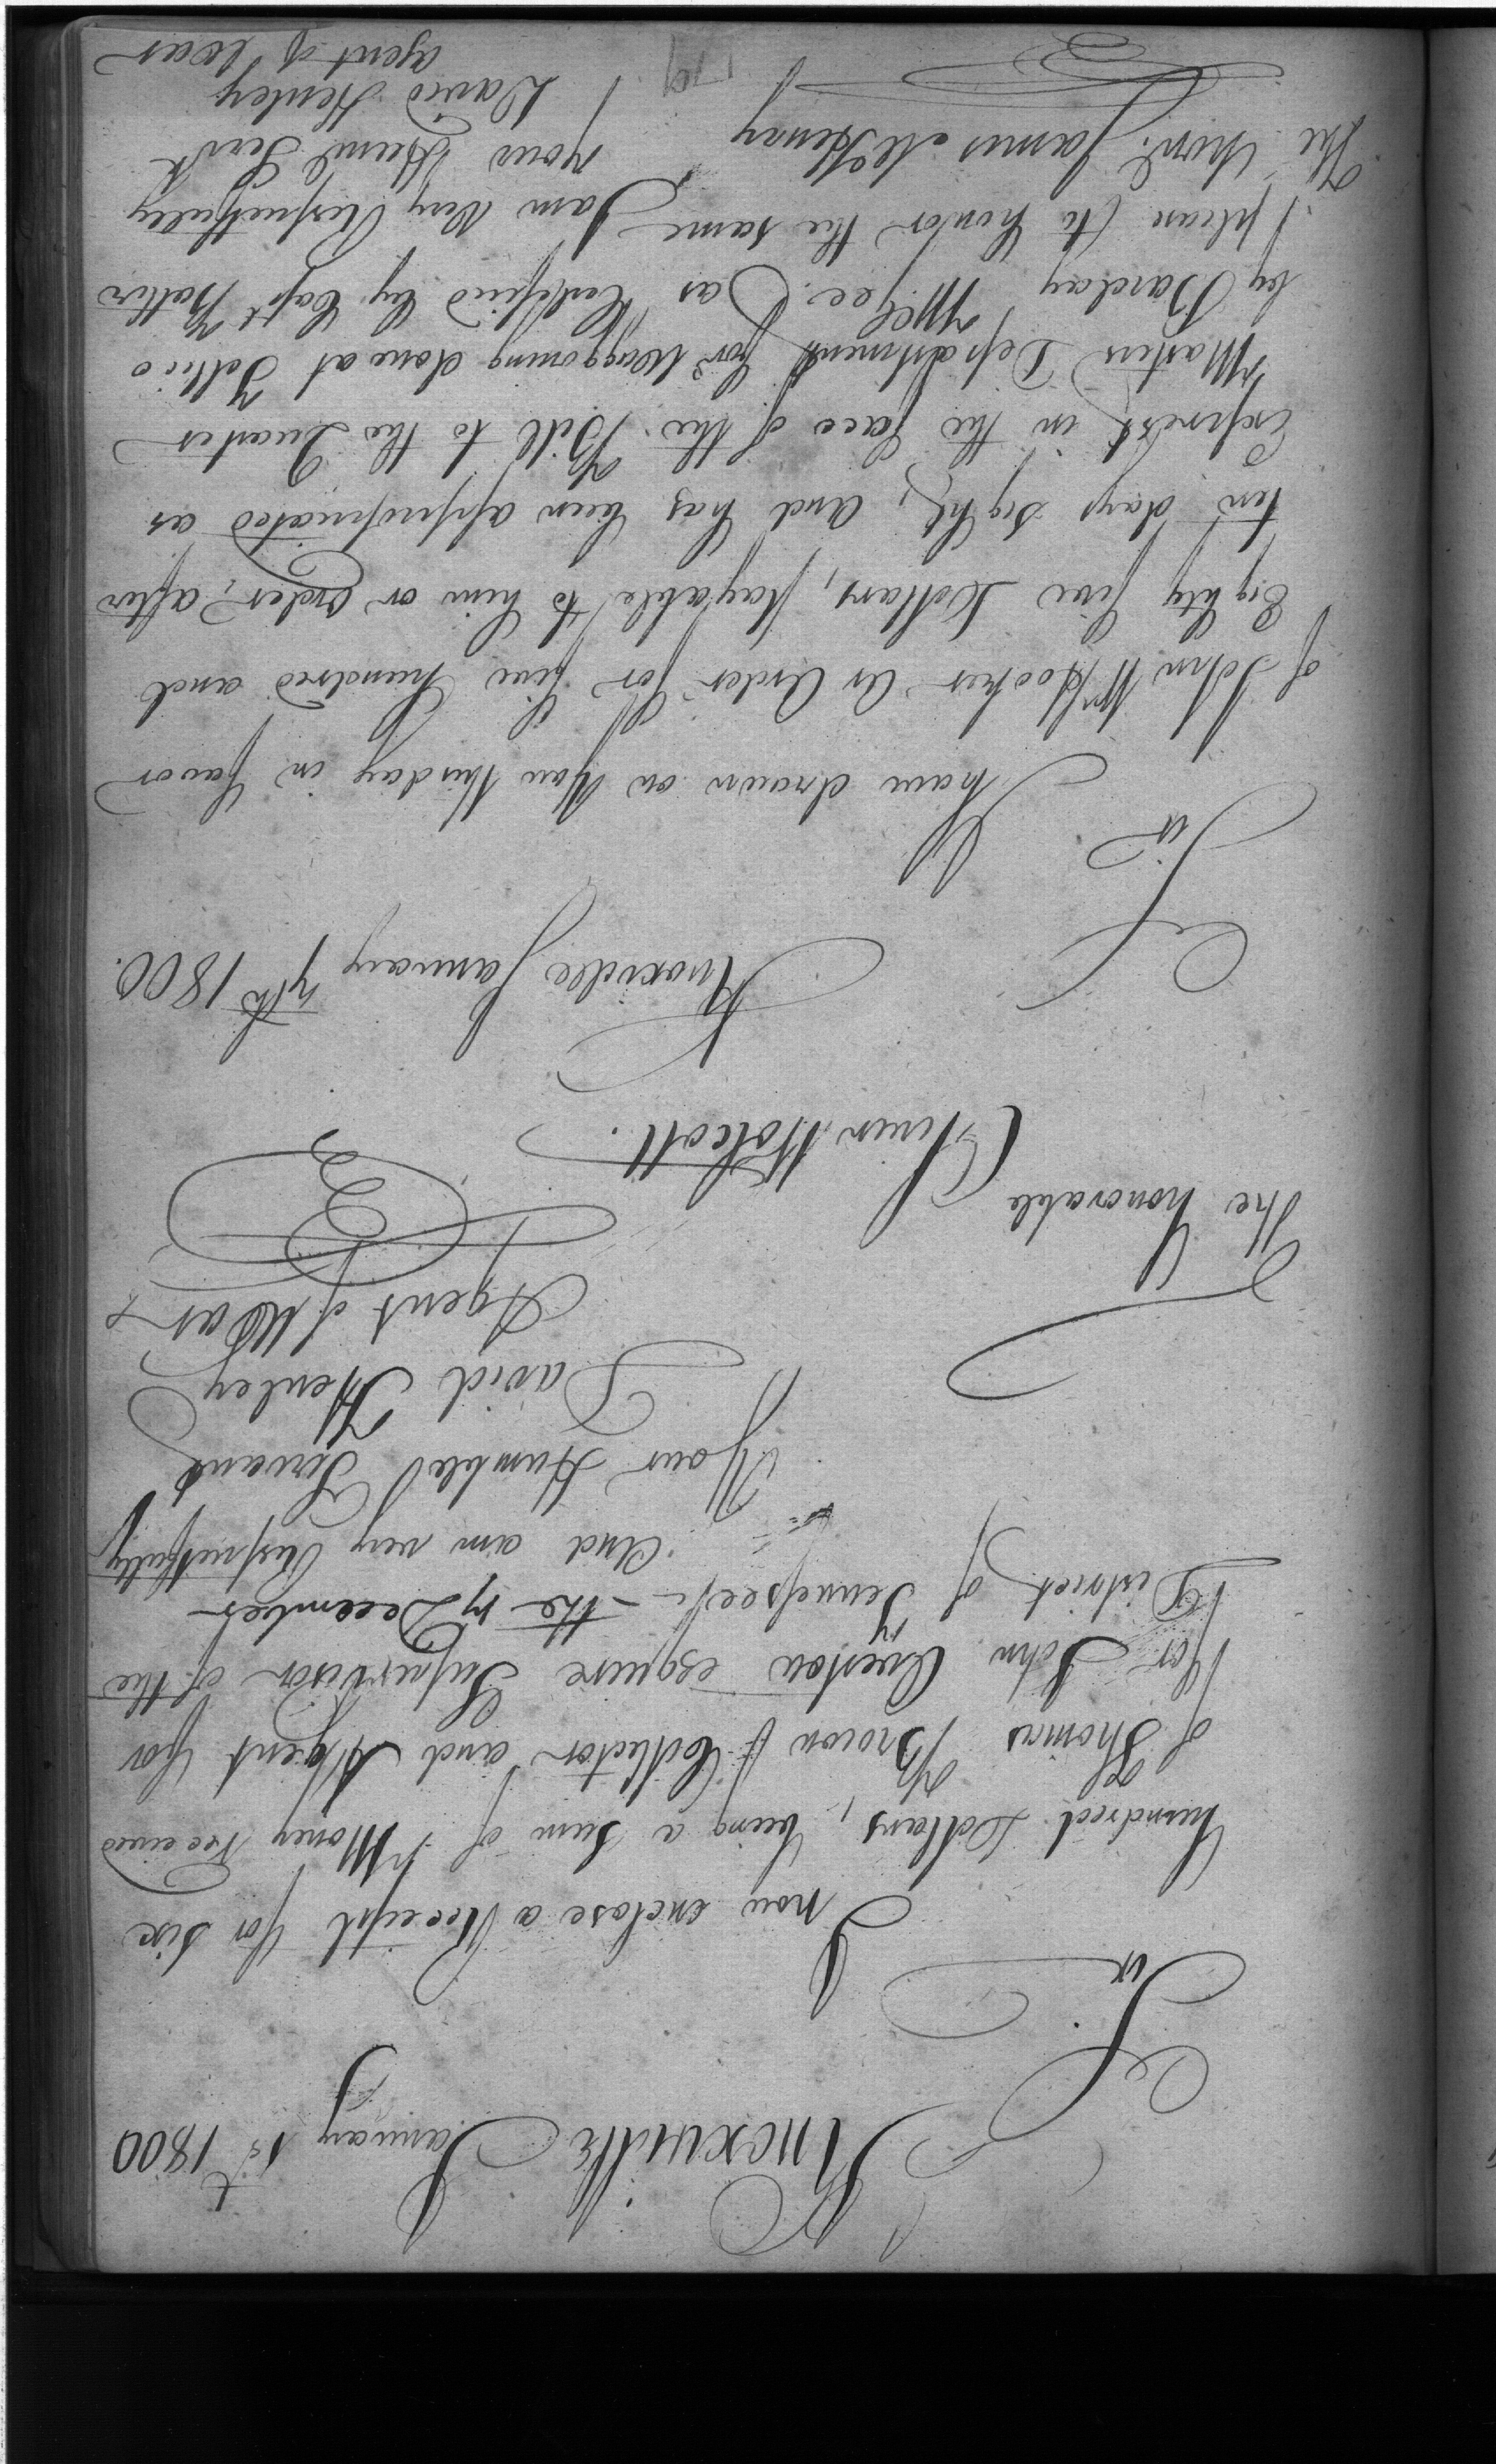 Knoxville January 1st 1800
Sir
I now enclose a Receipt for six
hundred Dollars, being a Sum of Money Received
of Thomas Brown Collector and Agent for
for John Overton esquire Supervisor of the
District of Tennessee - the 17 December
And am very Respectfully
Your Humble Servant
David Henley
Agent of War
The honorable
Oliver Wolcott.
Knoxville January 7th 1800.
Sir
I have drawn on You thisday in favor
of John Hooker or Order for five hundred and
Eighty five Dollars, payable to him or Order, after
ten days sight, and has been appropriated as
Exprest in the face of the Bill to the Quarter
Masters Department for Waggoning done at Tellico
by Barclay McGee. as Certified by Capt Butler
please to honor the same I am Very Respectfully
your Humb Servt
The Honl. James McHenry
David Henley
agent of War